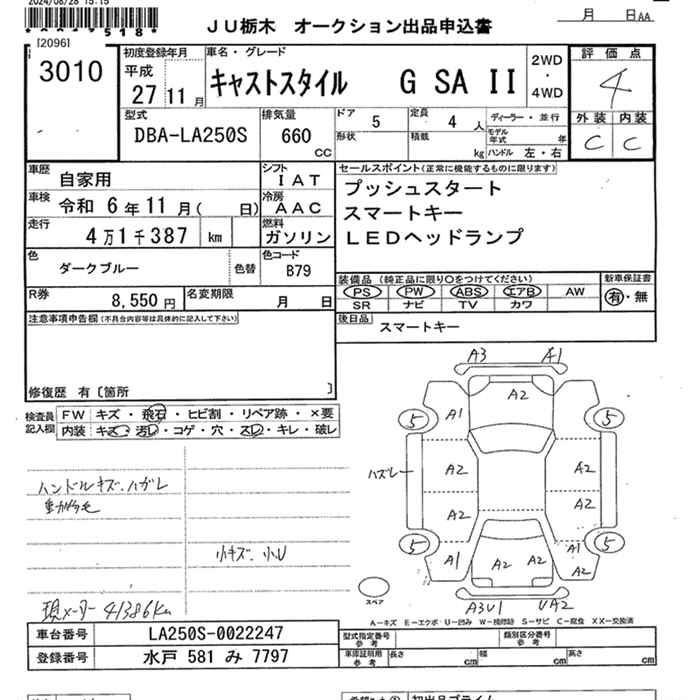 2024/08/28 15:15
ＪＵ栃木 オークション出品申込書
月 日AA
[2096]
3010
初度登録年月
平成
27 11 月
車名・グレード
キャストスタイル G SA II
2WD
・
4WD
評価点
4
外装 内装
C C
型式
DBA-LA250S
排気量
660
CC
ドア 5
定員 4 人
ディーラー・並行
形状
積載 kg
モデル年式 年
ハンドル 左・右
車歴 自家用
シフト ＩＡＴ
車検 令和 6 年 11 月( 日)
冷房 ＡＡＣ
走行 4 万 1 千 387 km
燃料 ガソリン
色 ダークブルー 色替
色コード B79
R券 8,550 円
名変期限 月 日
セールスポイント(正常に機能するものに限ります)
プッシュスタート
スマートキー
ＬＥＤヘッドランプ
装備品 (純正品に限り○をつけてください)
PS PW ABS エアB AW
SR ナビ TV カワ
新車保証書
有・無
後日品 スマートキー
注意事項申告欄(不具合内容等は具体的に記入して下さい)
修復歴 有 [箇所 ]
検査員記入欄
FW キズ・飛石・ヒビ割・リペア跡・×要
内装 キズ・汚レ・コゲ・穴・スレ・キレ・破レ
ハンドルキズ、ハガレ
小キズ、小U
現メーター 41386Km
A3 A1
A2
A1
5 5
ハズレー
A2 A2
A2 A2
5 5
A1 A2 A2 A1 A2
A3U1 UA2
スペア
A-キズ E-エクボ U-凹み W-補修跡 S-サビ C-腐食 XX-交換済
車台番号 LA250S-0022247
登録番号 水戸 581 み 7797
型式指定番号 参考
類別区分番号 参考
車庫証明用 参考 長さ cm 幅 cm 高さ cm